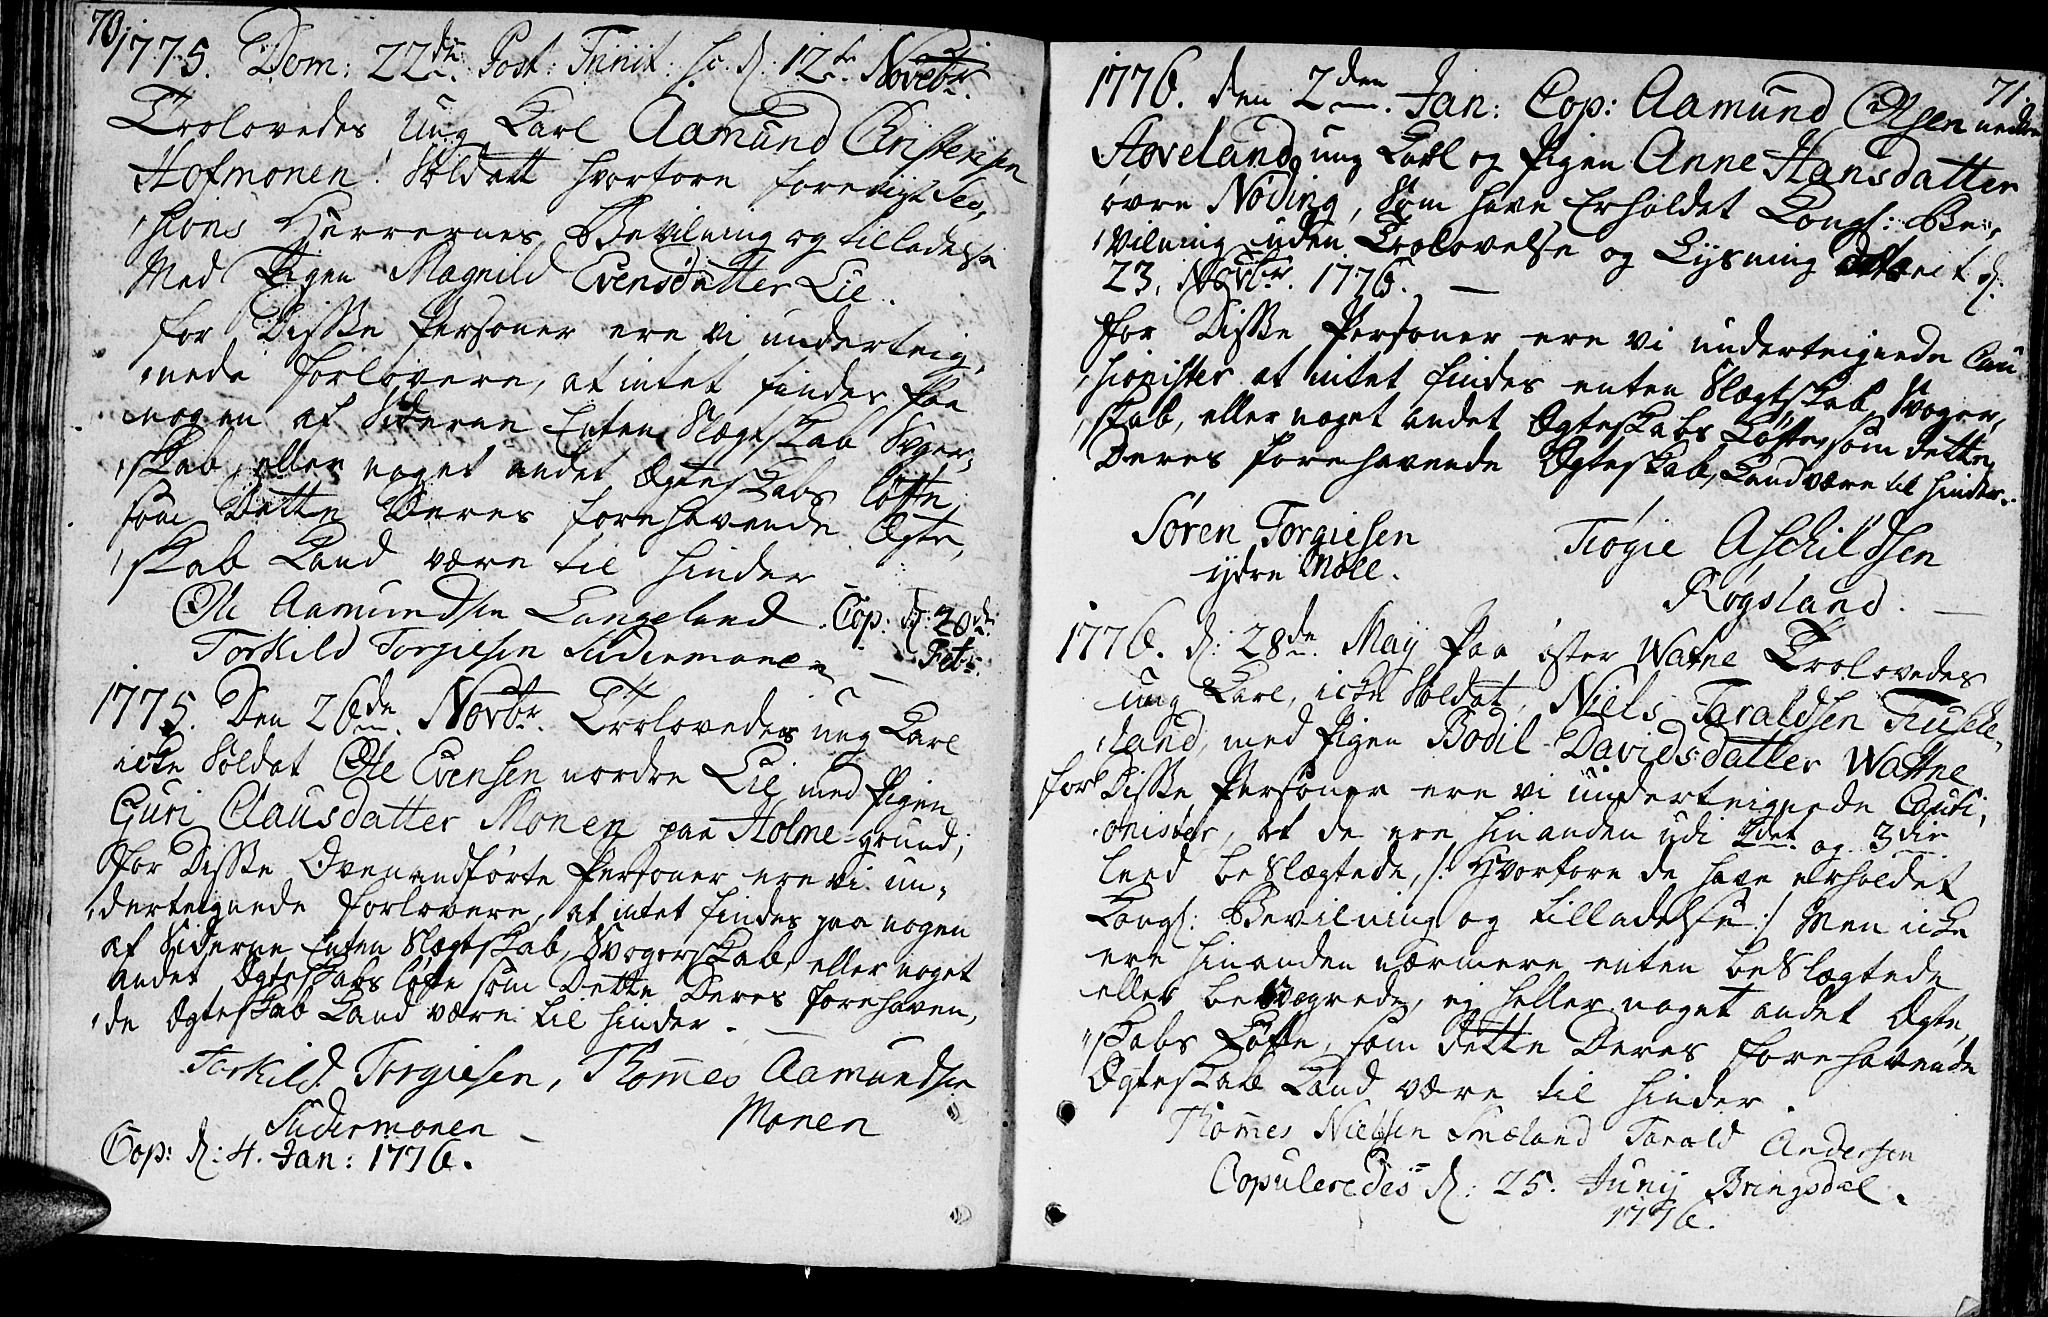 70.
1775. Dom: 22de Post: Trinit: h: d: 12te Novebr.
Trolovedes ung Karl Aamund Christensen
Hofmonen! Soldatt hvorfore forevigt Ses,
sions Herrernes Bevilning og tilladelse
Med Pigen Magnild Evensdatter Lie.
for Disse Personer ere vi underteig,
nede forlovere, at intet findes paa
nogen af Siderne Enten Slægtskab Svger,
skab, eller noget andet Ægteskabs løfte,
som Dette Deres forehavende Ægte,
skab Kand være til hinder
Ole Aamundsen Langeland. Cop: d: 20de
Torkild Torgiesen Sudermonen — Febr.
1775. Den 26de Novbr. Trolovedes ung Karl
icke Soldat Ole Evensen nordre Lie med Pigen
Guri Clausdatter Monen paa Holme-grund;
for Disse Ovenanførte Personer ere vi un,
derteignede forlovere, at intet findes paa nogen
af Siderne Enten Slægtskab, Svogerskab, eller noget
andet Ægteskabs løfte som Dette Deres forehaven,
de Ægteskab Kand være til hinder. —
Torkild Torgiesen, Thommes Aamundsen
Sudermonen — Monen
Cop: d: 4. Jan: 1776.
71.
1776. den 2den Jan: Cop: Aamund Olsen nedre
Høveland, ung Karl og Pigen Anne Hansdatter
øvre Nøding, Som have Erholdet Kongl: Be,
vilning uden Trolovelse og Lysning dateret d:
23, Novbr. 1776. —
for Disse Personer ere vi underteignede Cau
sionister at intet findes enten Slægtskab, Svoger,
skab, eller noget andet Ægteskabs Løfte, som dette
Deres forehavende Ægteskab, Kand være til hinder.
Søren Torgiesen Trøgie Aschildsen
ydre Møll. Røgsland. —
1776. d: 28de May paa øster Watne Trolovedes
ung Karl, icke Soldat, Niels Taraldsen Trusde,
land, med Pigen Bodil Davidsdatter Wattne
for Disse Personer ere vi underteignede Cautsi,
onister, at de ere hinanden udi 2det og 3die
leed beslægtede, /: Hvorfore de have erholdet
Kongl: Bevilning og tilladelse :/ Men icke
ere hinanden nærmere enten beslægtede
eller besvogrede, ej heller noget andet Ægte,
skabs Løfte, som dette Deres forehavende
Ægteskab Kand være til hinder.
Thommes Nielsen Smeland Tarald Andersen
Copuleredes d: 25. Junij Bringsdal.
1776.